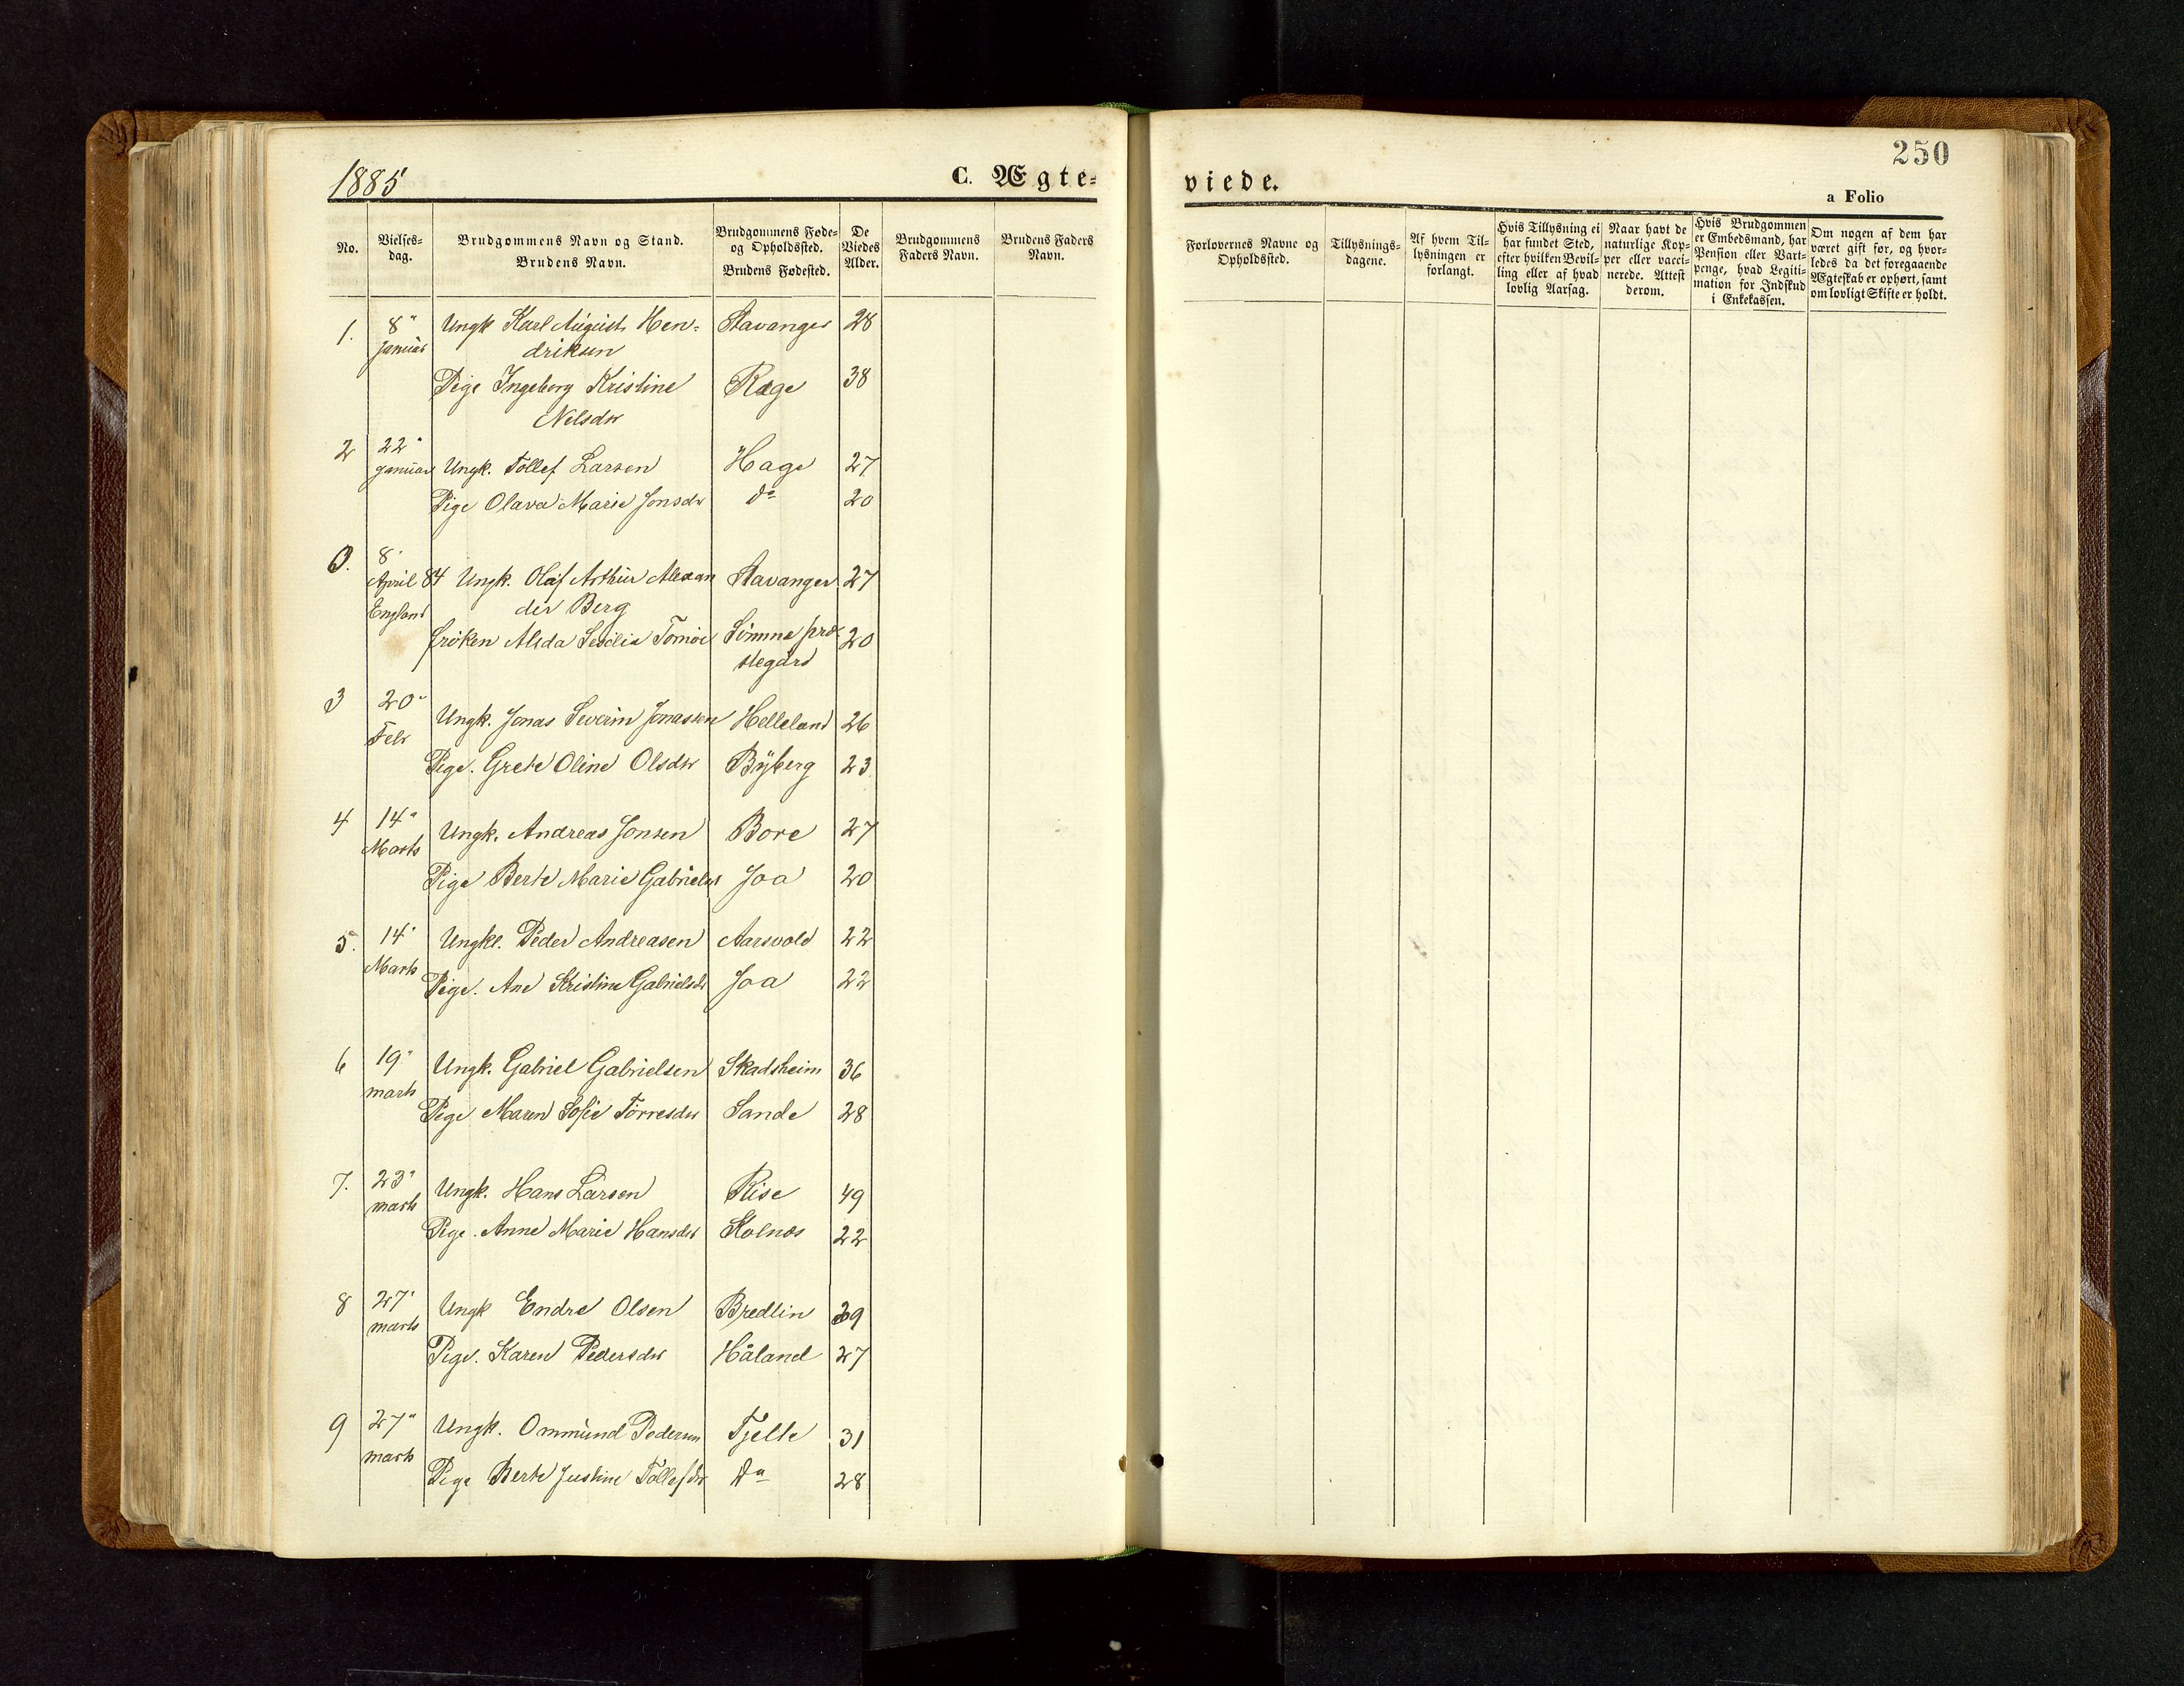 1885
C. Ægte-
viede.
250
a Folio
No.
Vielses-
dag.
Brudgommens Navn og Stand.
Brudens Navn.
Brudgommens Føde-
og Opholdssted.
Brudens Fødested.
De
Viedes
Alder.
Brudgommens
Faders Navn.
Brudens Faders
Navn.
Forlovernes Navne og
Opholdssted.
Tillysnings-
dagene.
Af hvem Til-
lysningen er
forlangt.
Hvis Tillysning ei
har fundet Sted,
efter hvilken Bevil-
ling eller af hvad
lovlig Aarsag.
Naar havt de
naturlige Kop-
per eller vacci-
nerede. Attest
derom.
Hvis Brudgommen
er Embedsmand, har
Pension eller Vart-
penge, hvad Legiti-
mation for Indskud
i Enkekassen.
Om nogen af dem har
været gift før, og hvor-
ledes da det foregaaende
Ægteskab er ophørt, samt
om lovligt Skifte er holdt.
1. 8" Ungk Karl August Hen- Stavanger 28
Januar driksen
Pige Ingeborg Kristine Ræge 38
Nelsdtr
2 22"
Januar Ungk. Tollef Larsen Haga 27
Pige Olava Marie Jonsdtr do 20
0. 8"
April 84 Ungk. Olaf Arthur Alexan Stavanger 27
England der Berg
frøken Alida Tomöe Sömna præ- 20
stegård
3 20" Ungk. Jonas Severin Jonassen Helleland 26
Febr
Pige. Grete Oline Olsdtr Byberg 23
4 14" Ungk. Andreas Jonsen Bore 27
Marts
Pige Berte Marie Gabrielsdtr Joa 20
5. 14" Ungkl. Peder Andreasen Aarsvold 22
Marts
Pige. Ane Kristine Gabrielsdtr Joa 22
6 19" Ungk. Gabriel Gabrielsen Skadsheim 36
marts
Pige Maren Sofie Torresdtr Sande 28
7. 23" Ungk. Hans Larsen Rise 49
marts
Pige. Anne Marie Hansdtr Kolnes 22
8 27" Ungk Endre Olsen Bredlin 29
marts
Pige. Karen Pedersdtr Håland 27
9 27" Ungk. Ommund Pedersen Tjelte 31
marts
Pige Berte Justine Tollefsdtr Do 28